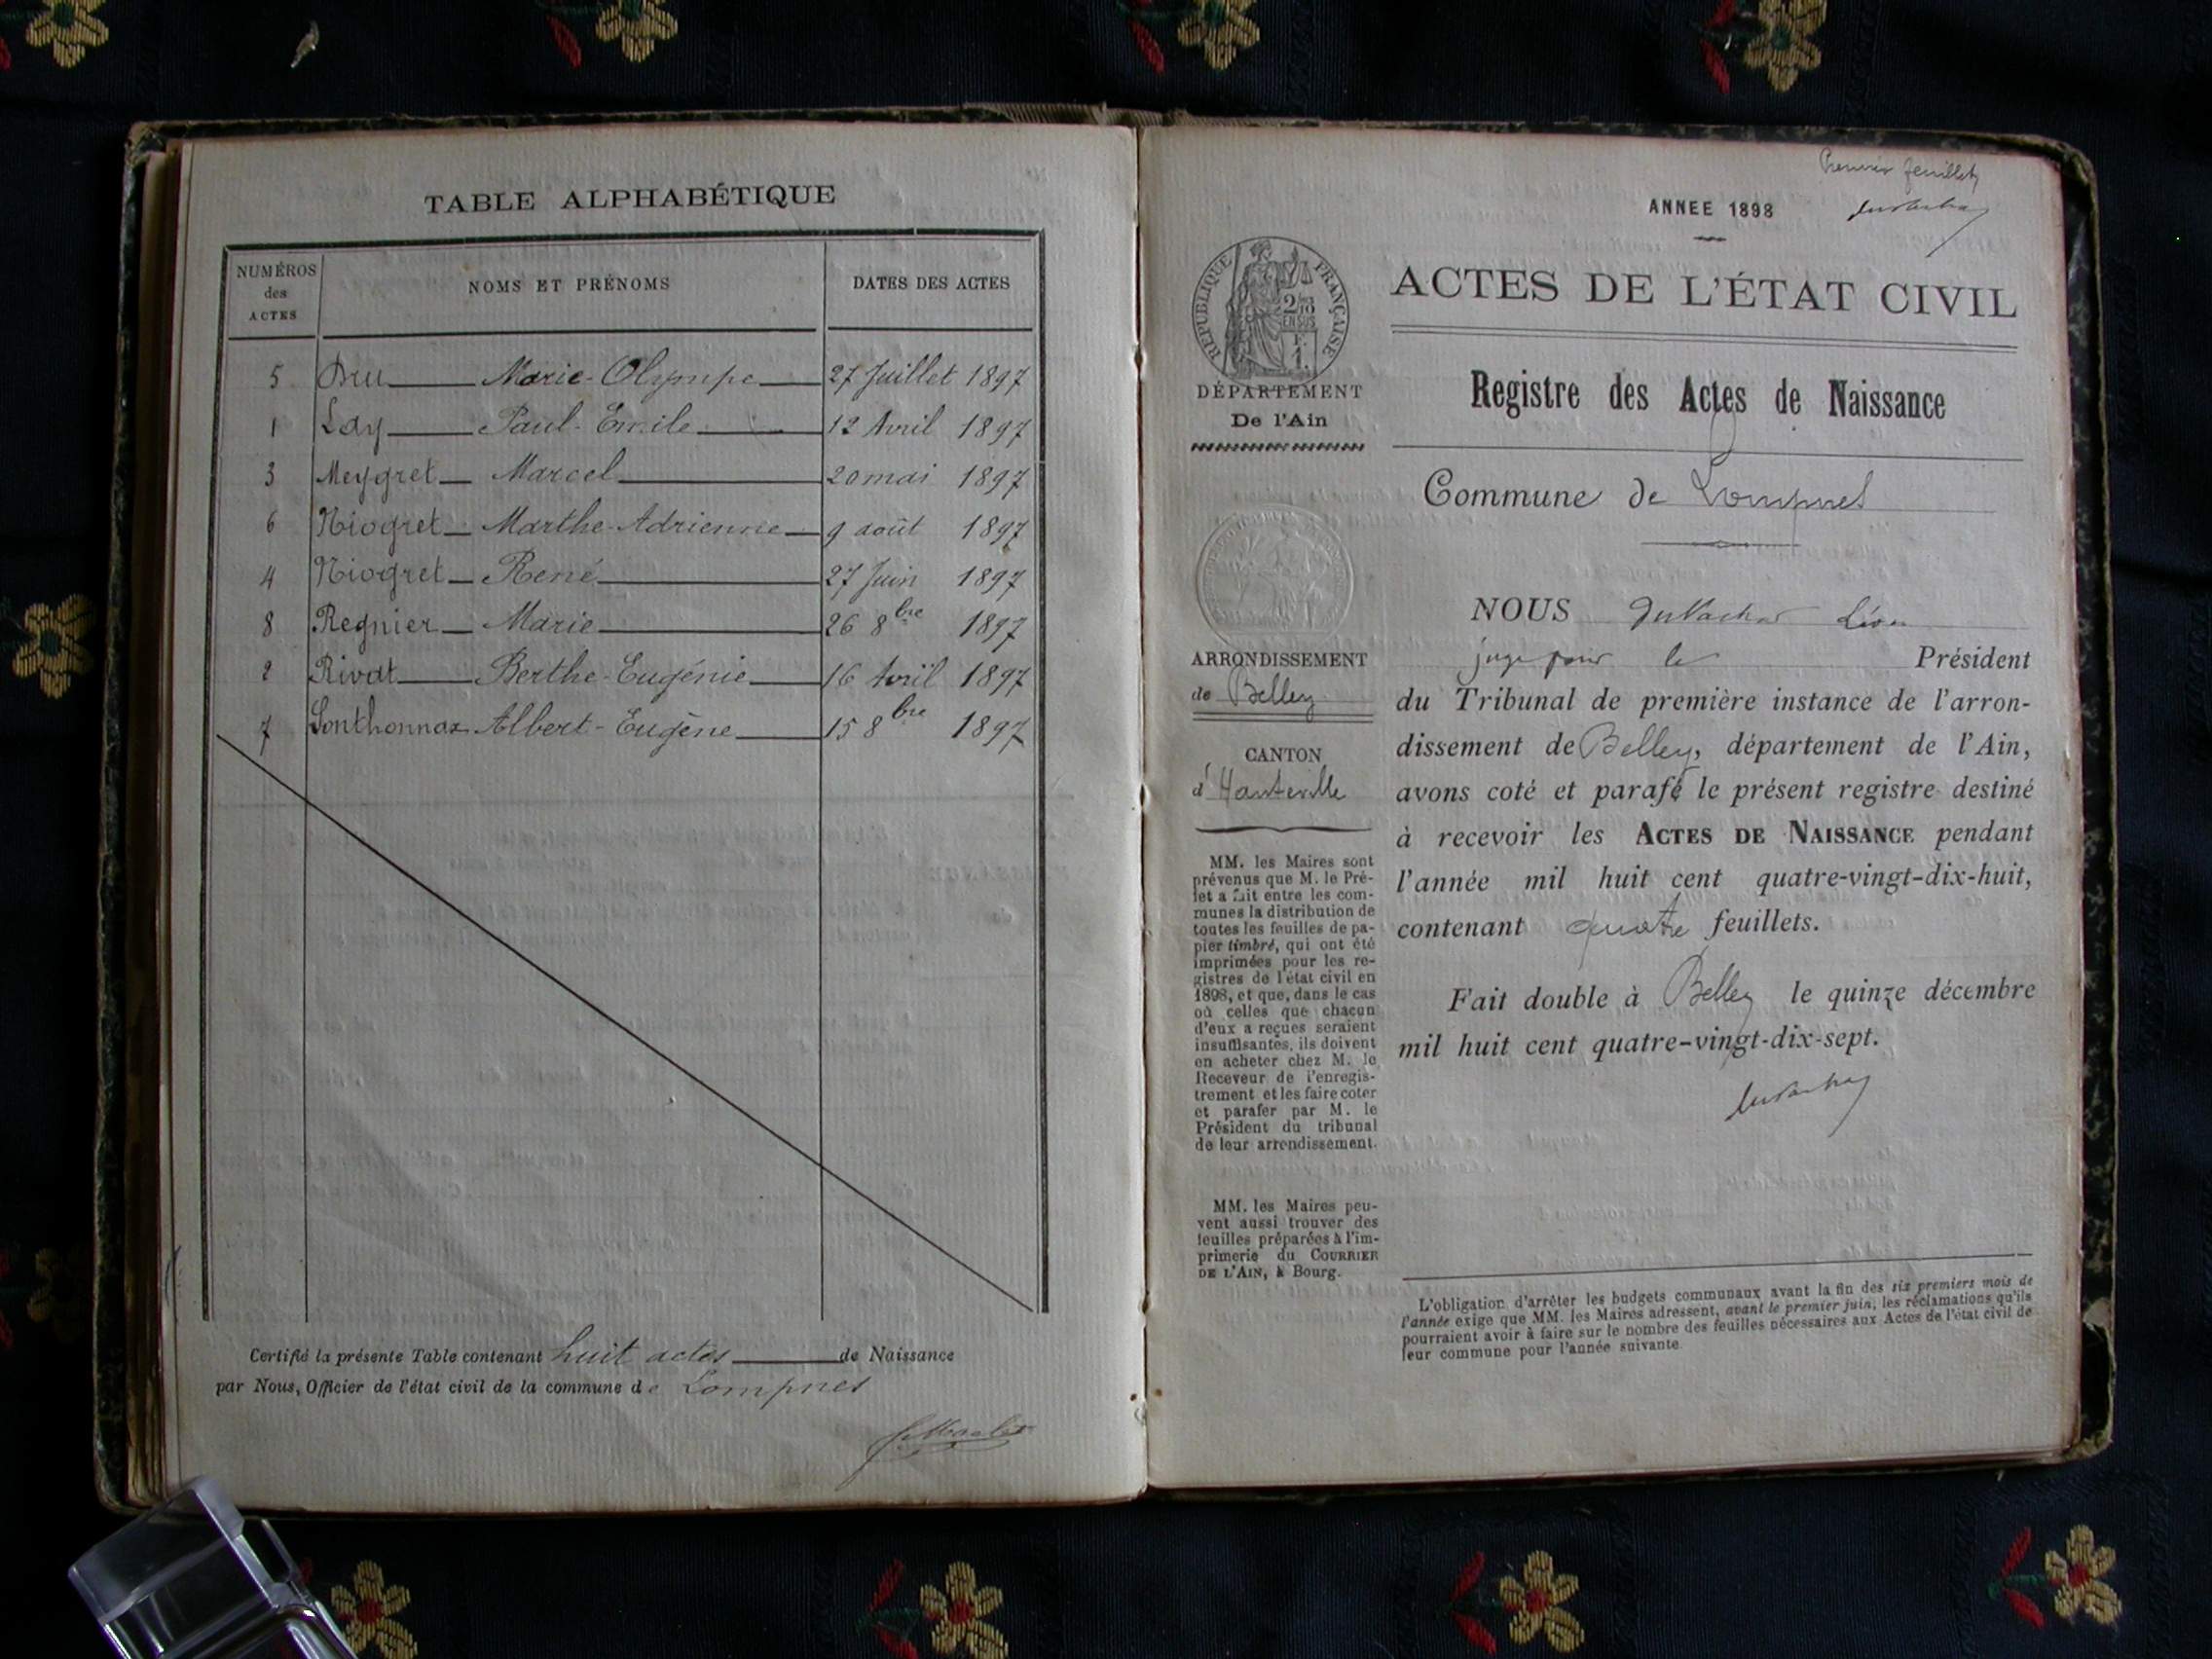 TABLE ALPHABÉTIQUE
NUMÉROS des ACTES
NOMS ET PRÉNOMS
DATES DES ACTES
5 Dru Marie-Olympe 27 Juillet 1897
1 Lay Paul-Emile 12 Avril 1897
3 Meygret Marcel 20 mai 1897
6 Niogret Marthe-Adrienne 9 août 1897
4 Niogret René 27 Juin 1897
8 Regnier Marie 26 8bre 1897
2 Rivat Berthe-Eugénie 16 Avril 1897
7 Sonthonnax Albert-Eugène 15 8bre 1897
Certifié la présente Table contenant huit actes de Naissance
par Nous, Officier de l'état civil de la commune de Lompnes
Premier feuillet
ANNEE 1898
RÉPUBLIQUE FRANÇAISE
2/10
EN SUS
DÉPARTEMENT
De l'Ain
ARRONDISSEMENT
de Belley
CANTON
d'Hauteville
MM. les Maires sont
prévenus que M. le Pré-
fet a fait entre les com-
munes la distribution de
toutes les feuilles de pa-
pier timbré, qui ont été
imprimées pour les re-
gistres de l'état civil en
1898, et que, dans le cas
où celles que chacun
d'eux a reçues seraient
insuffisantes, ils doivent
en acheter chez M. le
Receveur de l'enregis-
trement et les faire coter
et parafer par M. le
Président du tribunal
de leur arrondissement.
MM. les Maires peu-
vent aussi trouver des
feuilles préparées à l'im-
primerie du COURRIER
DE L'AIN, à Bourg.
ACTES DE L'ÉTAT CIVIL
Registre des Actes de Naissance
Commune de Lompnes
NOUS Léon
juge pour le Président
du Tribunal de première instance de l'arron-
dissement de Belley, département de l'Ain,
avons coté et parafé le présent registre destiné
à recevoir les ACTES DE NAISSANCE pendant
l'année mil huit cent quatre-vingt-dix-huit,
contenant quatre feuillets.
Fait double à Belley le quinze décembre
mil huit cent quatre-vingt-dix-sept.
L'obligation d'arrêter les budgets communaux avant la fin des six premiers mois de
l'année exige que MM. les Maires adressent, avant le premier juin, les réclamations qu'ils
pourraient avoir à faire sur le nombre des feuilles nécessaires aux Actes de l'état civil de
leur commune pour l'année suivante